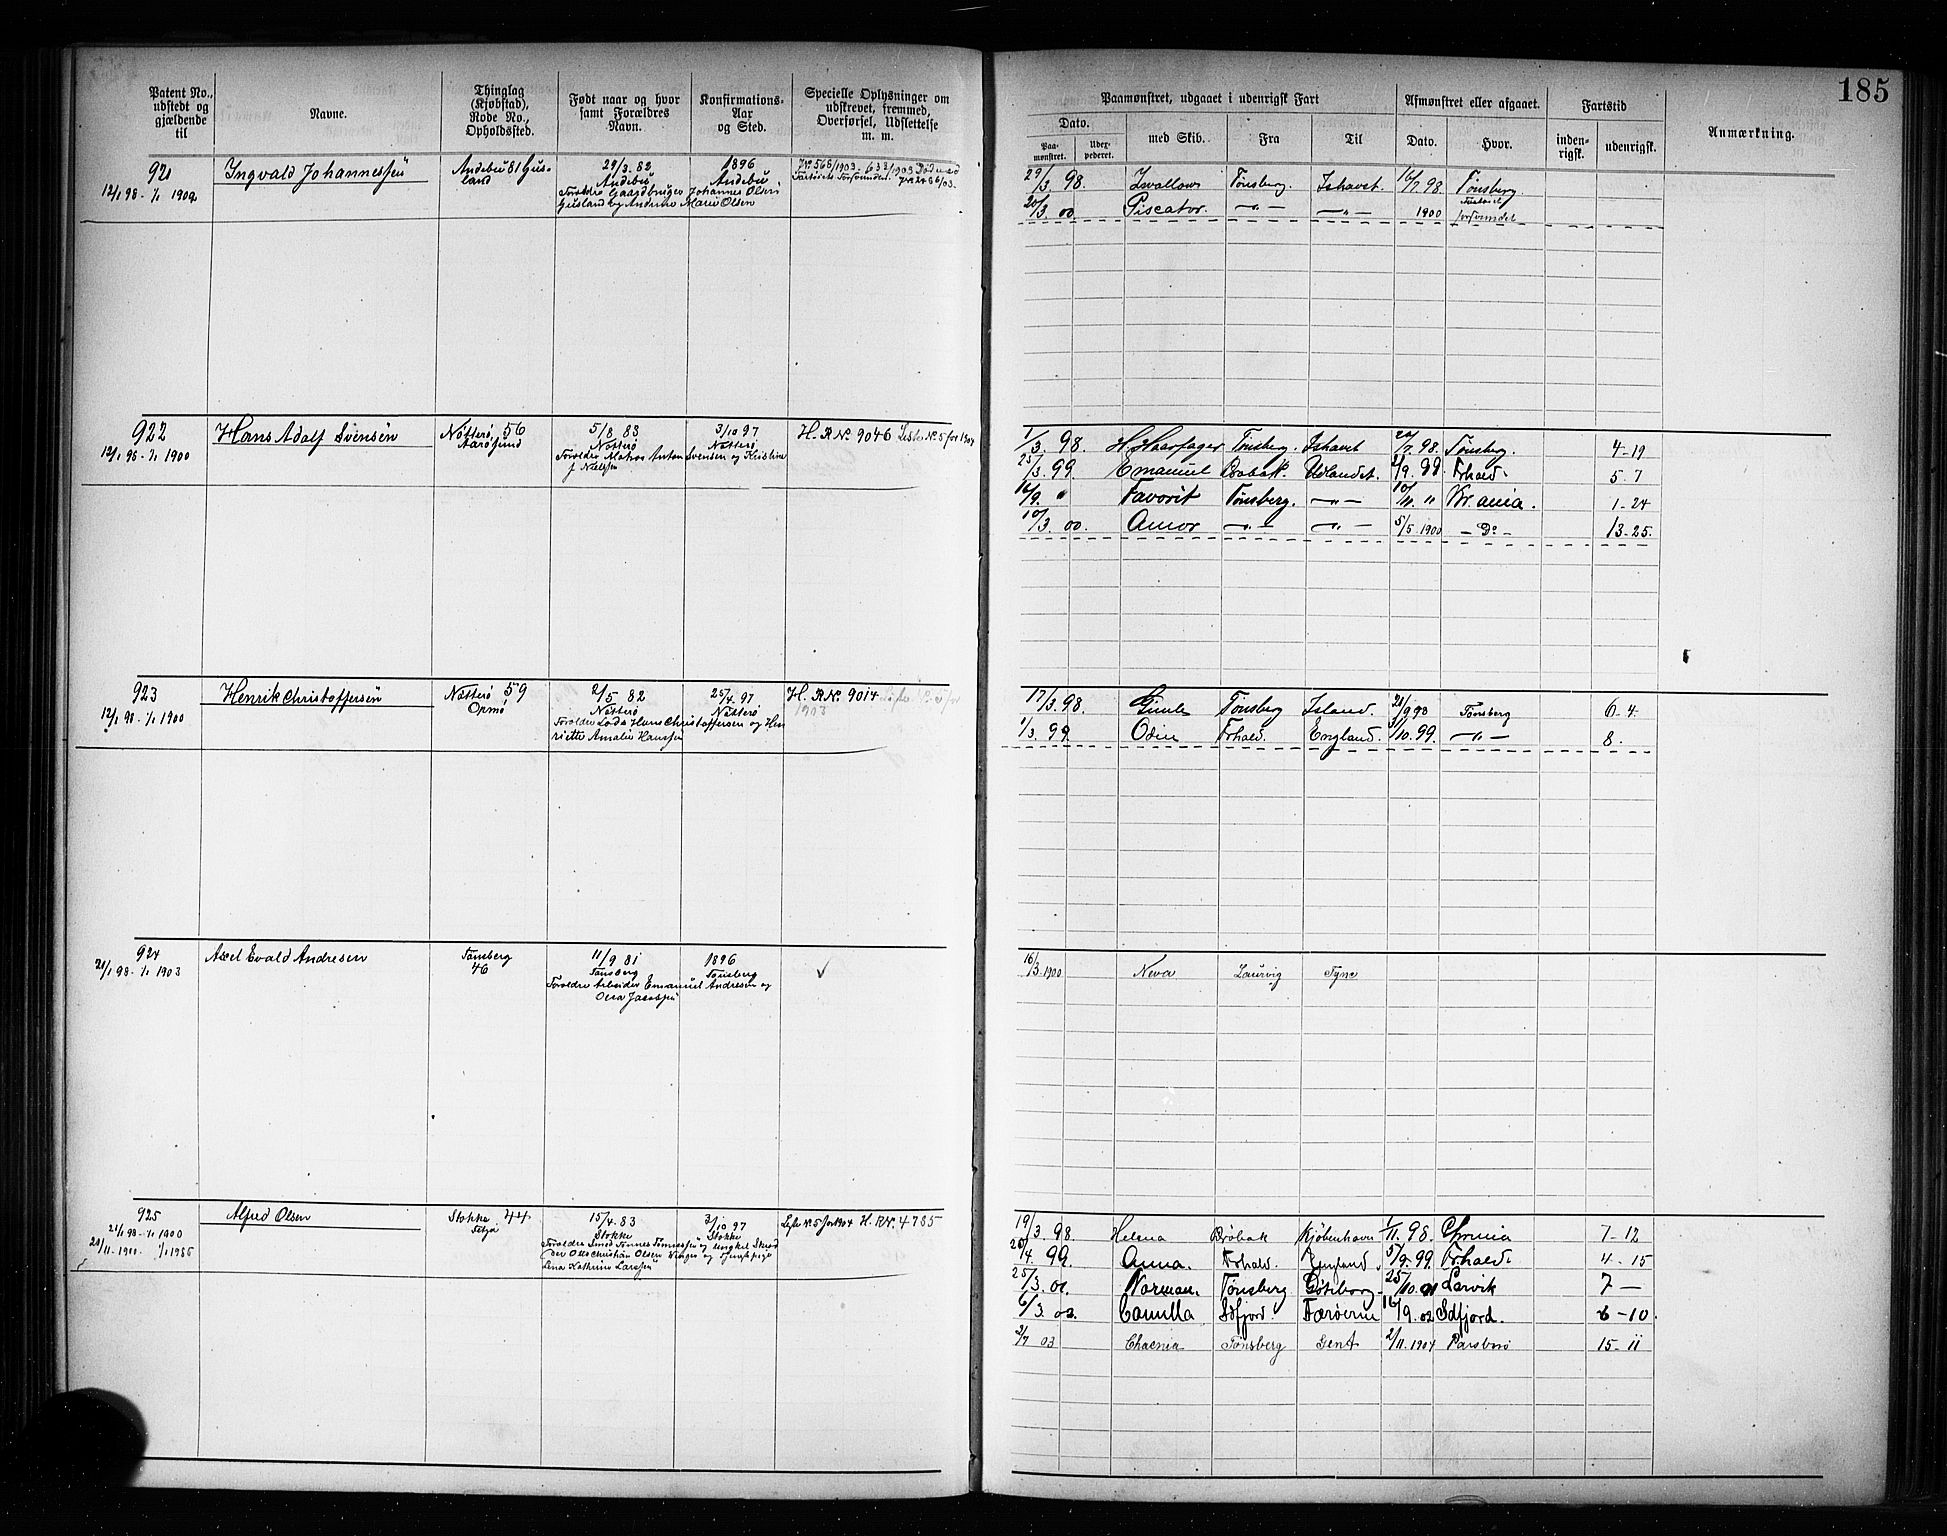 185
Patent No., udstedt og gjældende til
Navne.
Thinglag (Kjøbstad), Rode No., Opholdssted.
Født naar og hvor samt Forældres Navn.
Konfirmations-Aar og Sted.
Specielle Oplysninger om udskrevet, fremmed, Overførsel, Udslettelse m. m.
Paamønstret, udgaaet i udenrigsk Fart
Afmønstret eller afgaaet.
Fartstid
Anmærkning.
Dato.
Paa-mønstret.
Udex-pederet.
med Skib.
Fra
Til
Dato.
Hvor.
inden-rigsk.
udenrigsk.
921
12/1 98 - 1/1 1902
Ingvald Johannessen
Andebu 81 Gus-
land
29/3. 82
Andebu
Foreldre Gaardbruger Johannes Olsen
Gusland og Andrine Marie Olsen
1896
Andebu
No 568/1903 - 633/1903
Fartøiet Forsvunden.
29/3. 98. Swallow Tønsberg. Ishavet. 16/7. 98. Tønsberg
20/3. 00 Piscator. —"— —"— 1900 Fartøiet
forsvundet
922
12/1 98 - 1/1 1900
Hans Adolf Svensen
Nøtterø 56
Aarøsund
5/8 83
Nøtterø
Foreldre Matros Anton Svensen og Kristine
f Nielsen
3/10 97
Nøtterø
H. R No. 9046 Liste No. 5 for 1904
1/3. 98. H. Haarfager Tønsberg. Ishavet 22/7. 98. Tønsberg. 4-19
25/3. 99. Emanuel Drøbak. Udlandet. 2/9. 99. Frhald. 5. 7
16/9. " Favorit Tønsberg. —"— 10/11. " Kr.ania. 1-24
10/3. 00. Amor —"— —"— 5/5. 1900 — Do — 13-25.
923
12/1 98 - 1/1 1900
Henrik Christoffersen
Nøtterø 59
Ormø
2/5 82
Nøtterø
Foreldre Lods Hans Christoffersen og Hen
riette Amalie Hanssen
25/4. 97
Nøtterø
H. R No. 9014
1903
17/3. 98. Gimle Tønsberg Island. 21/9 98 Tønsberg 6. 4.
1/3. 99. Odin Frhald. England. 3/10. 99. —"— 8.
924
21/1 98 - 1/1 1903
Axel Evald Andresen
Tønsberg
46
11/9 81
Tønsberg
Foreldre Arbeider Emanuel Andresen og
Olea Jacobsen
1896
Tønsberg
16/3. 1900 Neva Laurvig Tyne
925
21/1 98 - 1/1 1900
Alfred Olsen
Stokke 44
15/4. 83
Stokke
Foreldre Smed Tønnes Tønnessen og
Lena Kathrine Larssen
3/10 97
Stokke
Liste No. 5 for 1904 H. R No. 4785
19/3. 98. Helena Drøbak Kjøbenhavn 1/11. 98. Chrania 7-12
20/4. 99. Anna. Frhald. England. 5/9. 99. Frhald. 4-15
25/3. 01. Norman. Tønsberg Gøteborg. 25/10. 01 Larvik 7 —
6/3. 02. Camilla Sdfjord. Færøerne 16/9. 02 Sdfjord. 6-10.
2/7 03 Tønsberg Gent 2/11. 1904 Parsboro 15-11